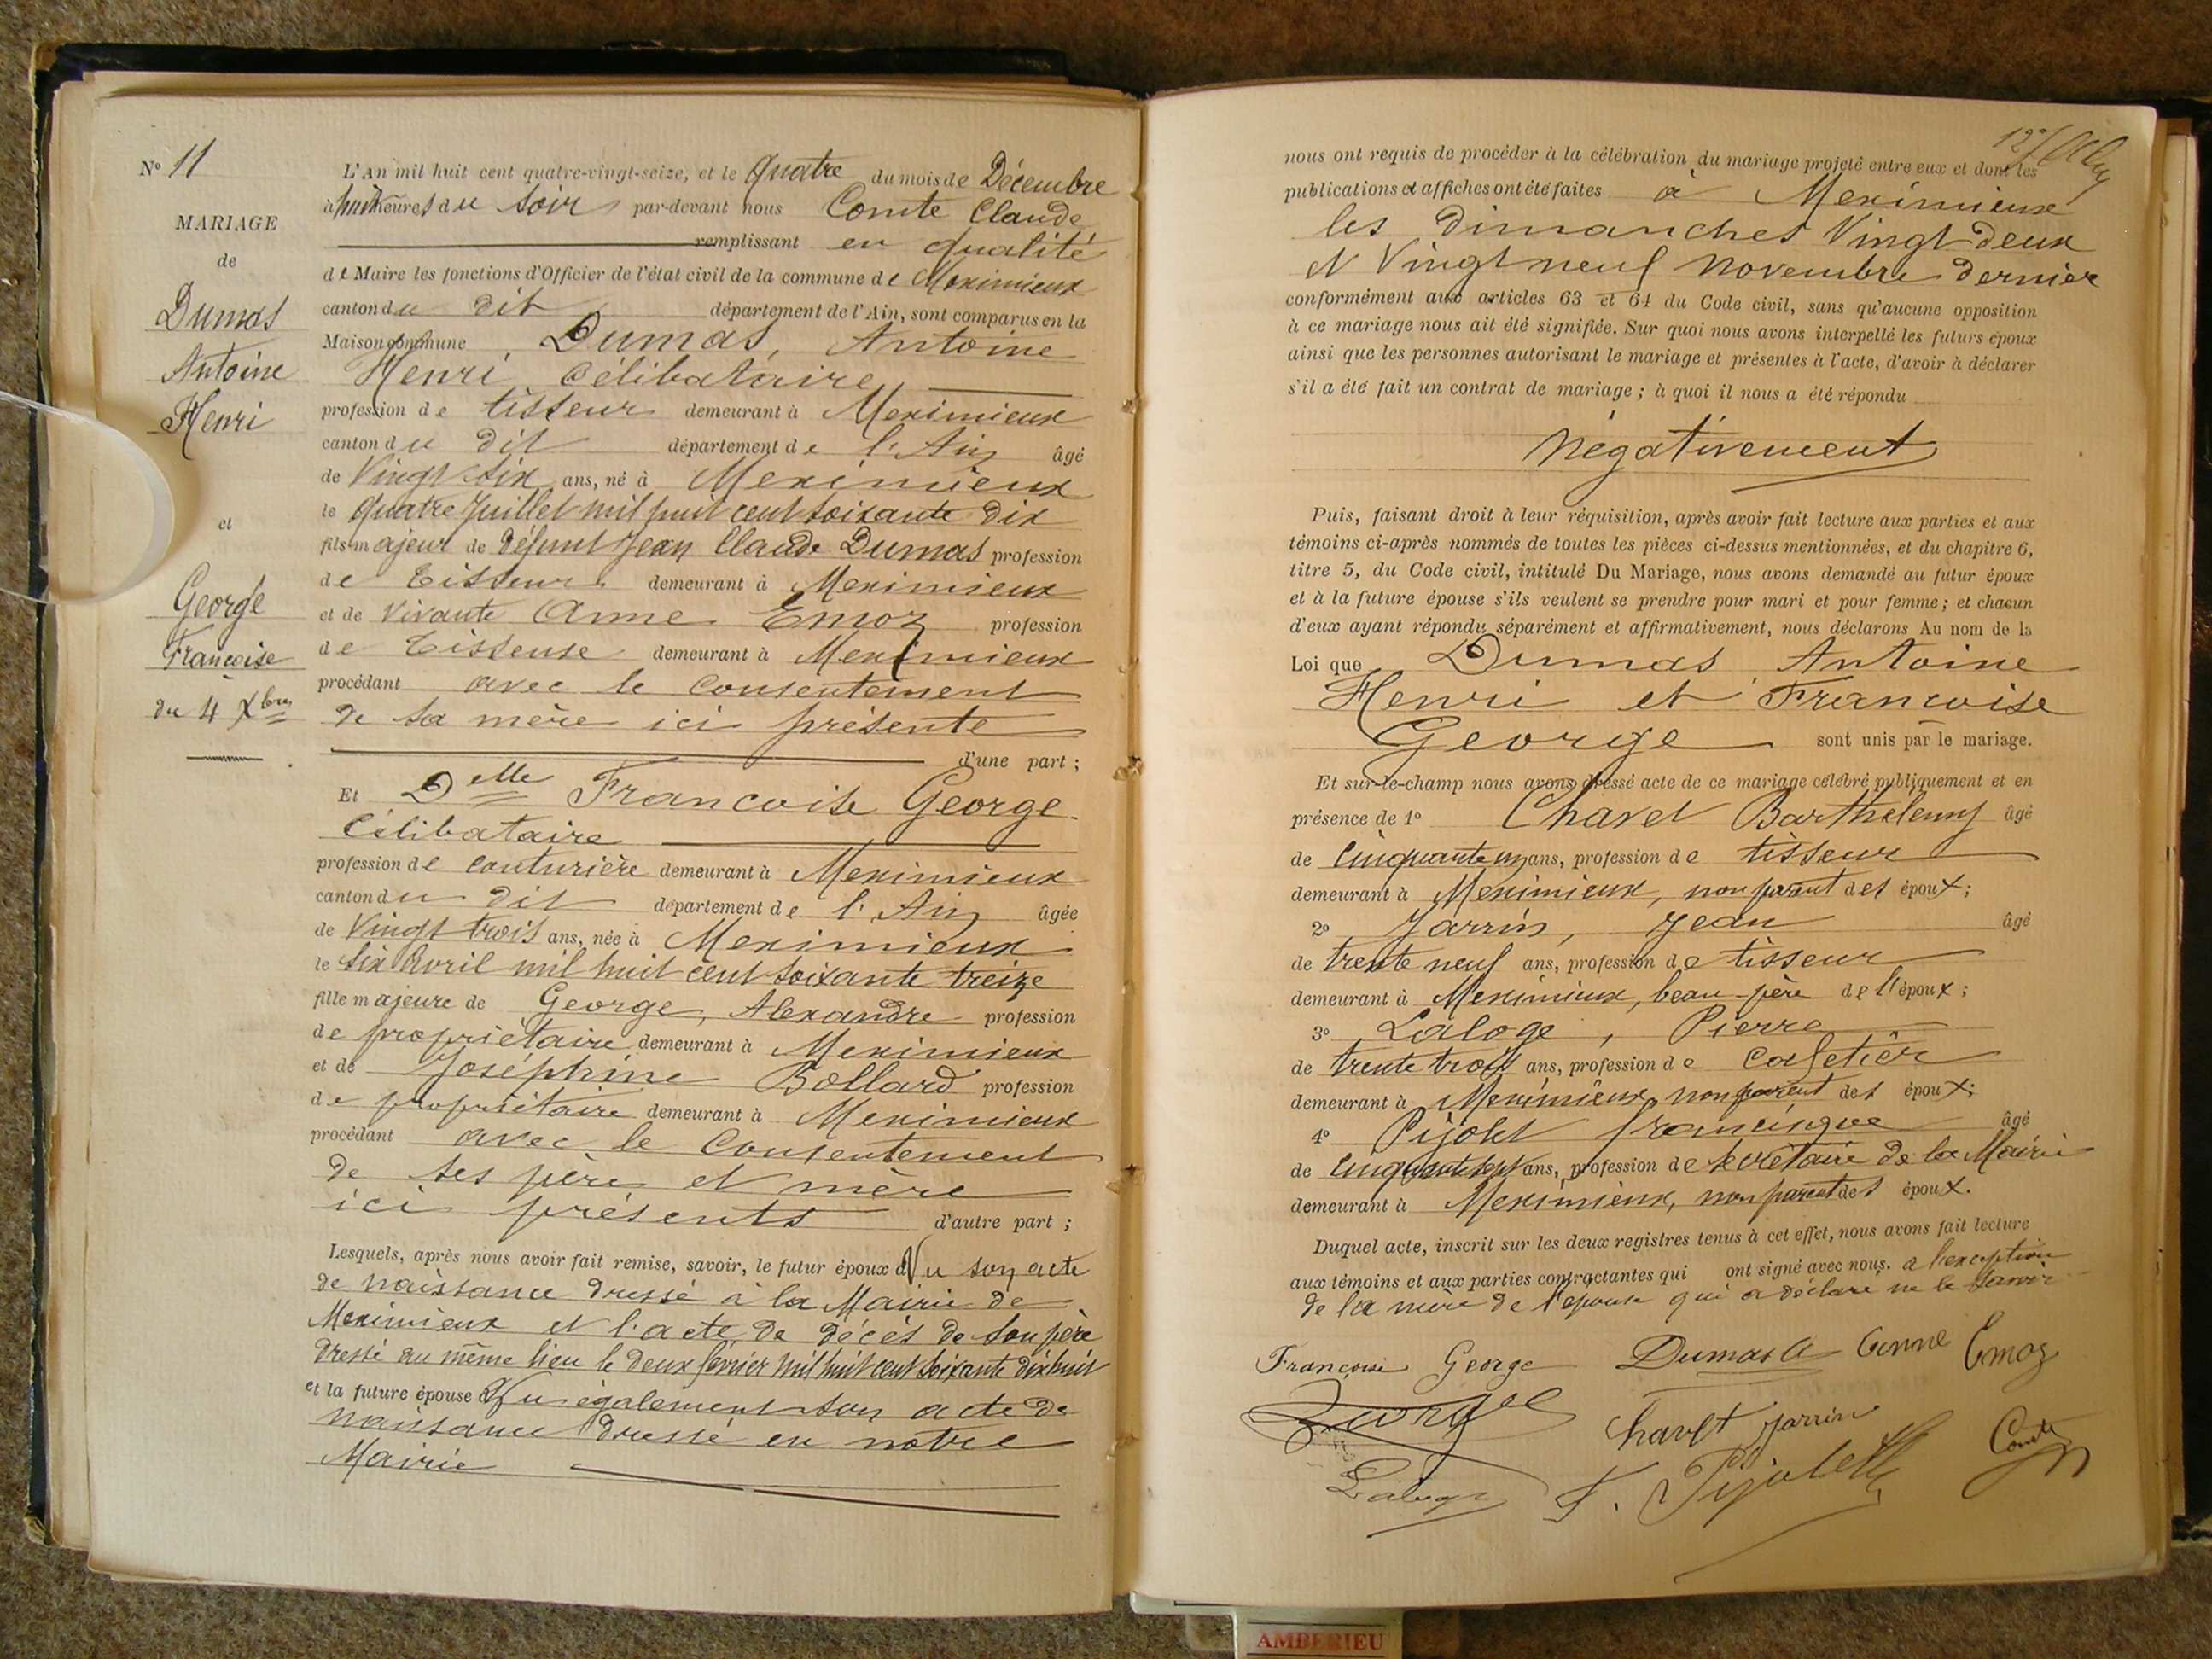 N° 11
MARIAGE
de
Dumas
Antoine
Henri
et
George
Françoise
du 4 Xbre
L'An mil huit cent quatre-vingt-seize, et le quatre du mois de Décembre
à huit heures du soir par-devant nous Comte Claude
remplissant en qualité
de Maire les fonctions d'Officier de l'état civil de la commune de Meximieux
canton du dit département de l'Ain, sont comparus en la
Maison commune Dumas, Antoine
Henri célibataire
profession de tisseur demeurant à Meximieux
canton du dit département de l'Ain âgé
de Vingt six ans, né à Meximieux
le quatre Juillet mil huit cent soixante dix
fils majeur de défunt Jean Claude Dumas profession
de tisseur demeurant à Meximieux
et de vivante Anne Emoz profession
de tisseuse demeurant à Meximieux
procédant avec le consentement
de sa mère ici présente
d'une part ;
Et Delle Francoise George
Célibataire
profession de couturière demeurant à Meximieux
canton du dit département de l'Ain âgée
de Vingt trois ans, née à Meximieux
le six Avril mil huit cent soixante treize
fille majeure de George, Alexandre profession
de propriétaire demeurant à Meximieux
et de Joséphine Bollard profession
de propriétaire demeurant à Meximieux
procédant avec le Consentement
de ses père et mère
ici présents d'autre part ;
Lesquels, après nous avoir fait remise, savoir, le futur époux Vu son acte
de naissance dressé à la Mairie de
Meximieux et l'acte de décès de son père
dressé au même lieu le deux février mil huit cent soixante dix huit
et la future épouse Vu également son acte de
naissance dressé en notre
Mairie
nous ont requis de procéder à la célébration du mariage projeté entre eux et dont les
publications et affiches ont été faites à Meximieux
les dimanches Vingt deux
et Vingt neuf novembre dernier
conformément aux articles 63 et 64 du Code civil, sans qu'aucune opposition
à ce mariage nous ait été signifiée. Sur quoi nous avons interpellé les futurs époux
ainsi que les personnes autorisant le mariage et présentes à l'acte, d'avoir à déclarer
s'il a été fait un contrat de mariage ; à quoi il nous a été répondu
négativement
Puis, faisant droit à leur réquisition, après avoir fait lecture aux parties et aux
témoins ci-après nommés de toutes les pièces ci-dessus mentionnées, et du chapitre 6,
titre 5, du Code civil, intitulé Du Mariage, nous avons demandé au futur époux
et à la future épouse s'ils veulent se prendre pour mari et pour femme ; et chacun
d'eux ayant répondu séparément et affirmativement, nous déclarons Au nom de la
Loi que Dumas Antoine
Henri et Francoise
George sont unis par le mariage.
Et sur-le-champ nous avons dressé acte de ce mariage célébré publiquement et en
présence de 1° Chavel Barthélemy âgé
de cinquante un ans, profession de tisseur
demeurant à Meximieux, non parent des époux ;
2° Jarrin, Jean âgé
de trente neuf ans, profession de tisseur
demeurant à Meximieux, beau-père de l'époux ;
3° Laloge, Pierre
de trente trois ans, profession de cafetier
demeurant à Meximieux, non parent des époux ;
4° Pijolet francisque âgé
de cinquante sept ans, profession de secrétaire de la Mairie
demeurant à Meximieux, non parent des époux.
Duquel acte, inscrit sur les deux registres tenus à cet effet, nous avons fait lecture
aux témoins et aux parties contractantes qui ont signé avec nous. a l'exception
de la mère de l'épouse qui a déclaré ne le savoir
Françoise George Dumas A Anne Emoz
George Chavel Jarrin Comte
Laloge F. Pijolet
AMBERIEU